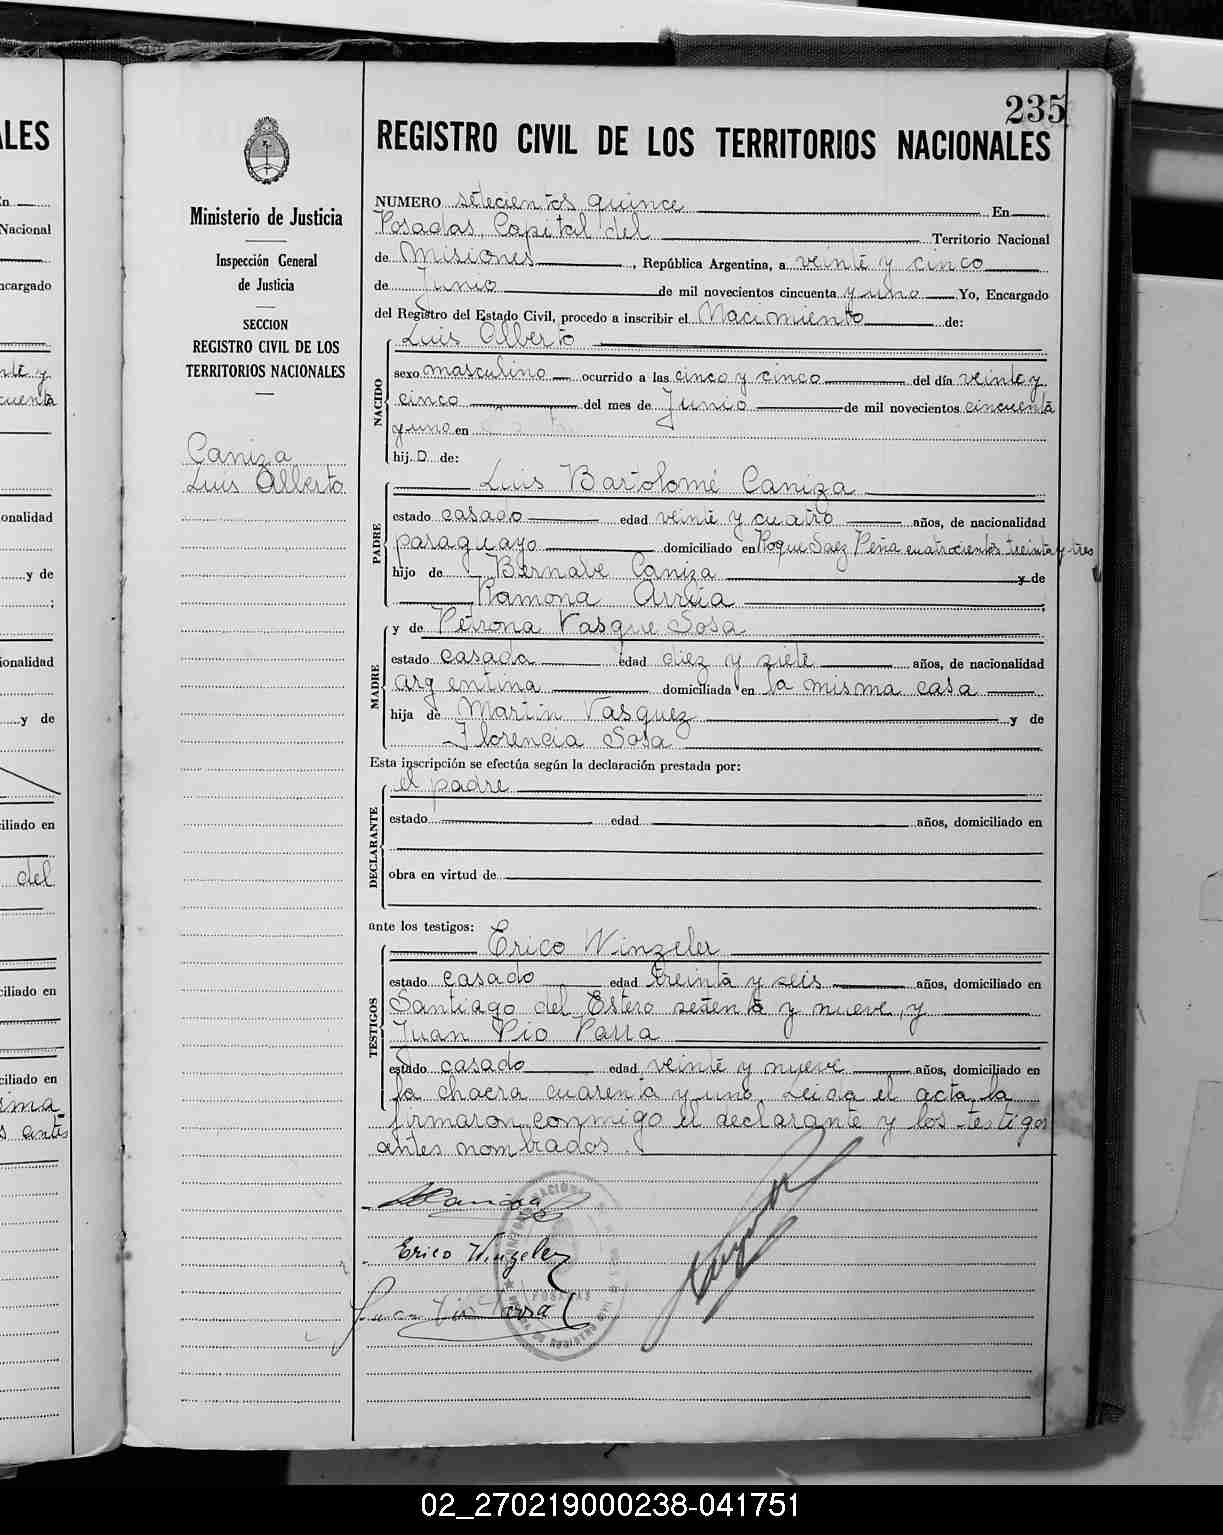 235
REGISTRO CIVIL DE LOS TERRITORIOS NACIONALES
Ministerio de Justicia
Inspección General
de Justicia
SECCION
REGISTRO CIVIL DE LOS
TERRITORIOS NACIONALES
Caniza
Luis Alberto
NUMERO setecientos quince En
Posadas, Capital del Territorio Nacional
de Misiones, República Argentina, a veinte y cinco
de Junio de mil novecientos cincuenta y uno Yo, Encargado
del Registro del Estado Civil, procedo a inscribir el Nacimiento de:
NACIDO
Luis Alberto
sexo masculino ocurrido a las cinco y cinco del día veinte y
cinco del mes de Junio de mil novecientos cincuenta
y uno en
hij.o de:
PADRE
Luis Bartolomé Caniza
estado casado edad veinte y cuatro años, de nacionalidad
paraguayo domiciliado en Roque Saez Peña cuatrocientos treinta y tres
hijo de Bernabe Caniza y de
Ramona
MADRE
y de Petrona Vasque Sosa
estado casada edad diez y siete años, de nacionalidad
argentina domiciliada en la misma casa
hija de Martin Vasquez y de
Florencia Sosa
Esta inscripción se efectúa según la declaración prestada por:
DECLARANTE
el padre
estado edad años, domiciliado en
obra en virtud de
ante los testigos:
TESTIGOS
Erico Winzeler
estado casado edad treinta y seis años, domiciliado en
Santiago del Estero setenta y nueve, y
Juan Pio Parra
estado casado edad veinte y nueve años, domiciliado en
la chacra cuarenta y uno. Leida el acta, la
firmaron conmigo el declarante y los testigos
antes nombrados.
Erico Winzeler
Juan Pio Parra
POSADAS
ALES
En
Nacional
ncargado
nte y
cuenta
onalidad
y de
;
ionalidad
y de
ciliado en
del
ciliado en
ciliado en
antes
02_270219000238-041751